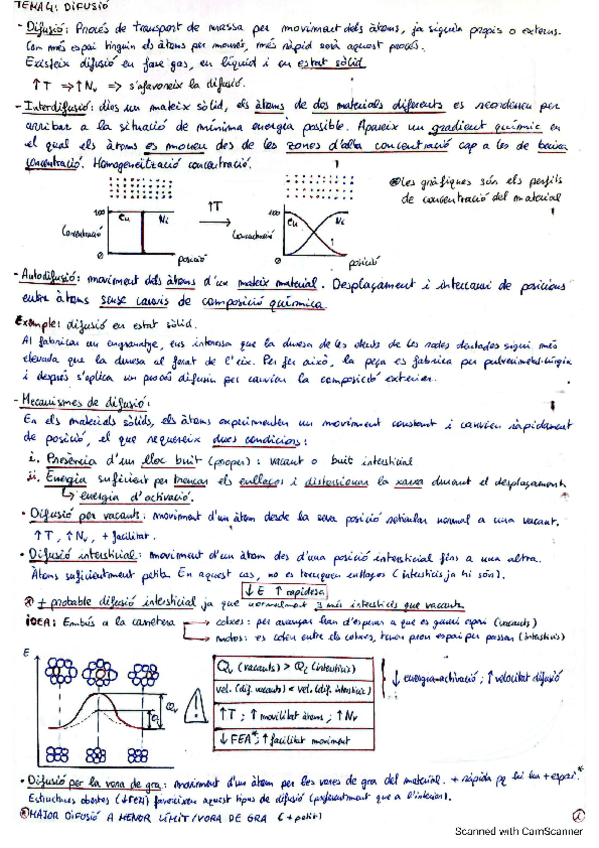 TEMA 4: DIFUSIÓ
- Difusió: Procés de transport de massa per moviment dels àtoms, ja siguin propis o externs.
Com més espai tinguin els àtoms per moure's, més ràpid serà aquest procés.
Existeix difusió en fase gas, en líquid i en estat sòlid
↑T ⇒ ↑Nv ⇒ s'afavoreix la difusió.
- Interdifusió: dins un mateix sòlid, els àtoms de dos materials diferents es reordenen per
arribar a la situació de mínima energia possible. Apareix un gradient químic en
el qual els àtoms es mouen des de les zones d'alta concentració cap a les de baixa
concentració. Homogeneïtzació concentració.
⊛ les gràfiques són els perfils
de concentració del material
100 Cu Ni
Concentració
0 posició
↑T
100 Cu Ni
Concentració
0 posició
- Autodifusió: moviment dels àtoms d'un mateix material. Desplaçament i intercanvi de posicions
entre àtoms sense canvis de composició química.
Exemple: difusió en estat sòlid.
Al fabricar un engranatge, ens interessa que la duresa de les dents de les rodes dentades sigui més
elevada que la duresa al forat de l'eix. Per fer això, la peça es fabrica per
i després s'aplica un procés difusiu per canviar la composició exterior.
- Mecanismes de difusió:
En els materials sòlids, els àtoms experimenten un moviment constant i canvien ràpidament
de posició, el que requereix dues condicions:
i. Presència d'un lloc buit (proper): vacant o buit intersticial
ii. Energia suficient per trencar els enllaços i distorsionar la xarxa durant el desplaçament.
↳ energia d'activació.
• Difusió per vacants: moviment d'un àtom desde la seva posició reticular normal a una vacant.
↑T, ↑Nv, + facilitat.
• Difusió intersticial: moviment d'un àtom des d'una posició intersticial fins a una altra.
Àtoms suficientment petits. En aquest cas, no es trenquen enllaços (intersticis ja hi són).
↓E ↑rapidesa
⊛ + probable difusió intersticial ja que normalment ∃ més intersticis que vacants.
IDEA: Embús a la carretera → cotxes: per avançar han d'esperar a que es generi espai (vacants)
→ motos: es colen entre els cotxes, tenen prou espai per passar (intersticis)
E
Qv
Qi
Qv (vacants) > Qi (intersticis)
vel. (dif. vacants) < vel. (dif. intersticis)
↑T; ↑mobilitat àtoms; ↑Nv
↓FEA*; ↑facilitat moviment
↓ energia activació; ↑velocitat difusió
• Difusió per la vora de gra: moviment d'un àtom per les vores de gra del material. + ràpida pq hi ha + espai.*
Estructures obertes (↓FEA) afavoreixen aquest tipus de difusió (preferentment que a l'interior).
⊛ MAJOR DIFUSIÓ A MENOR LÍMIT/VORA DE GRA (+ petit)
Scanned with CamScanner